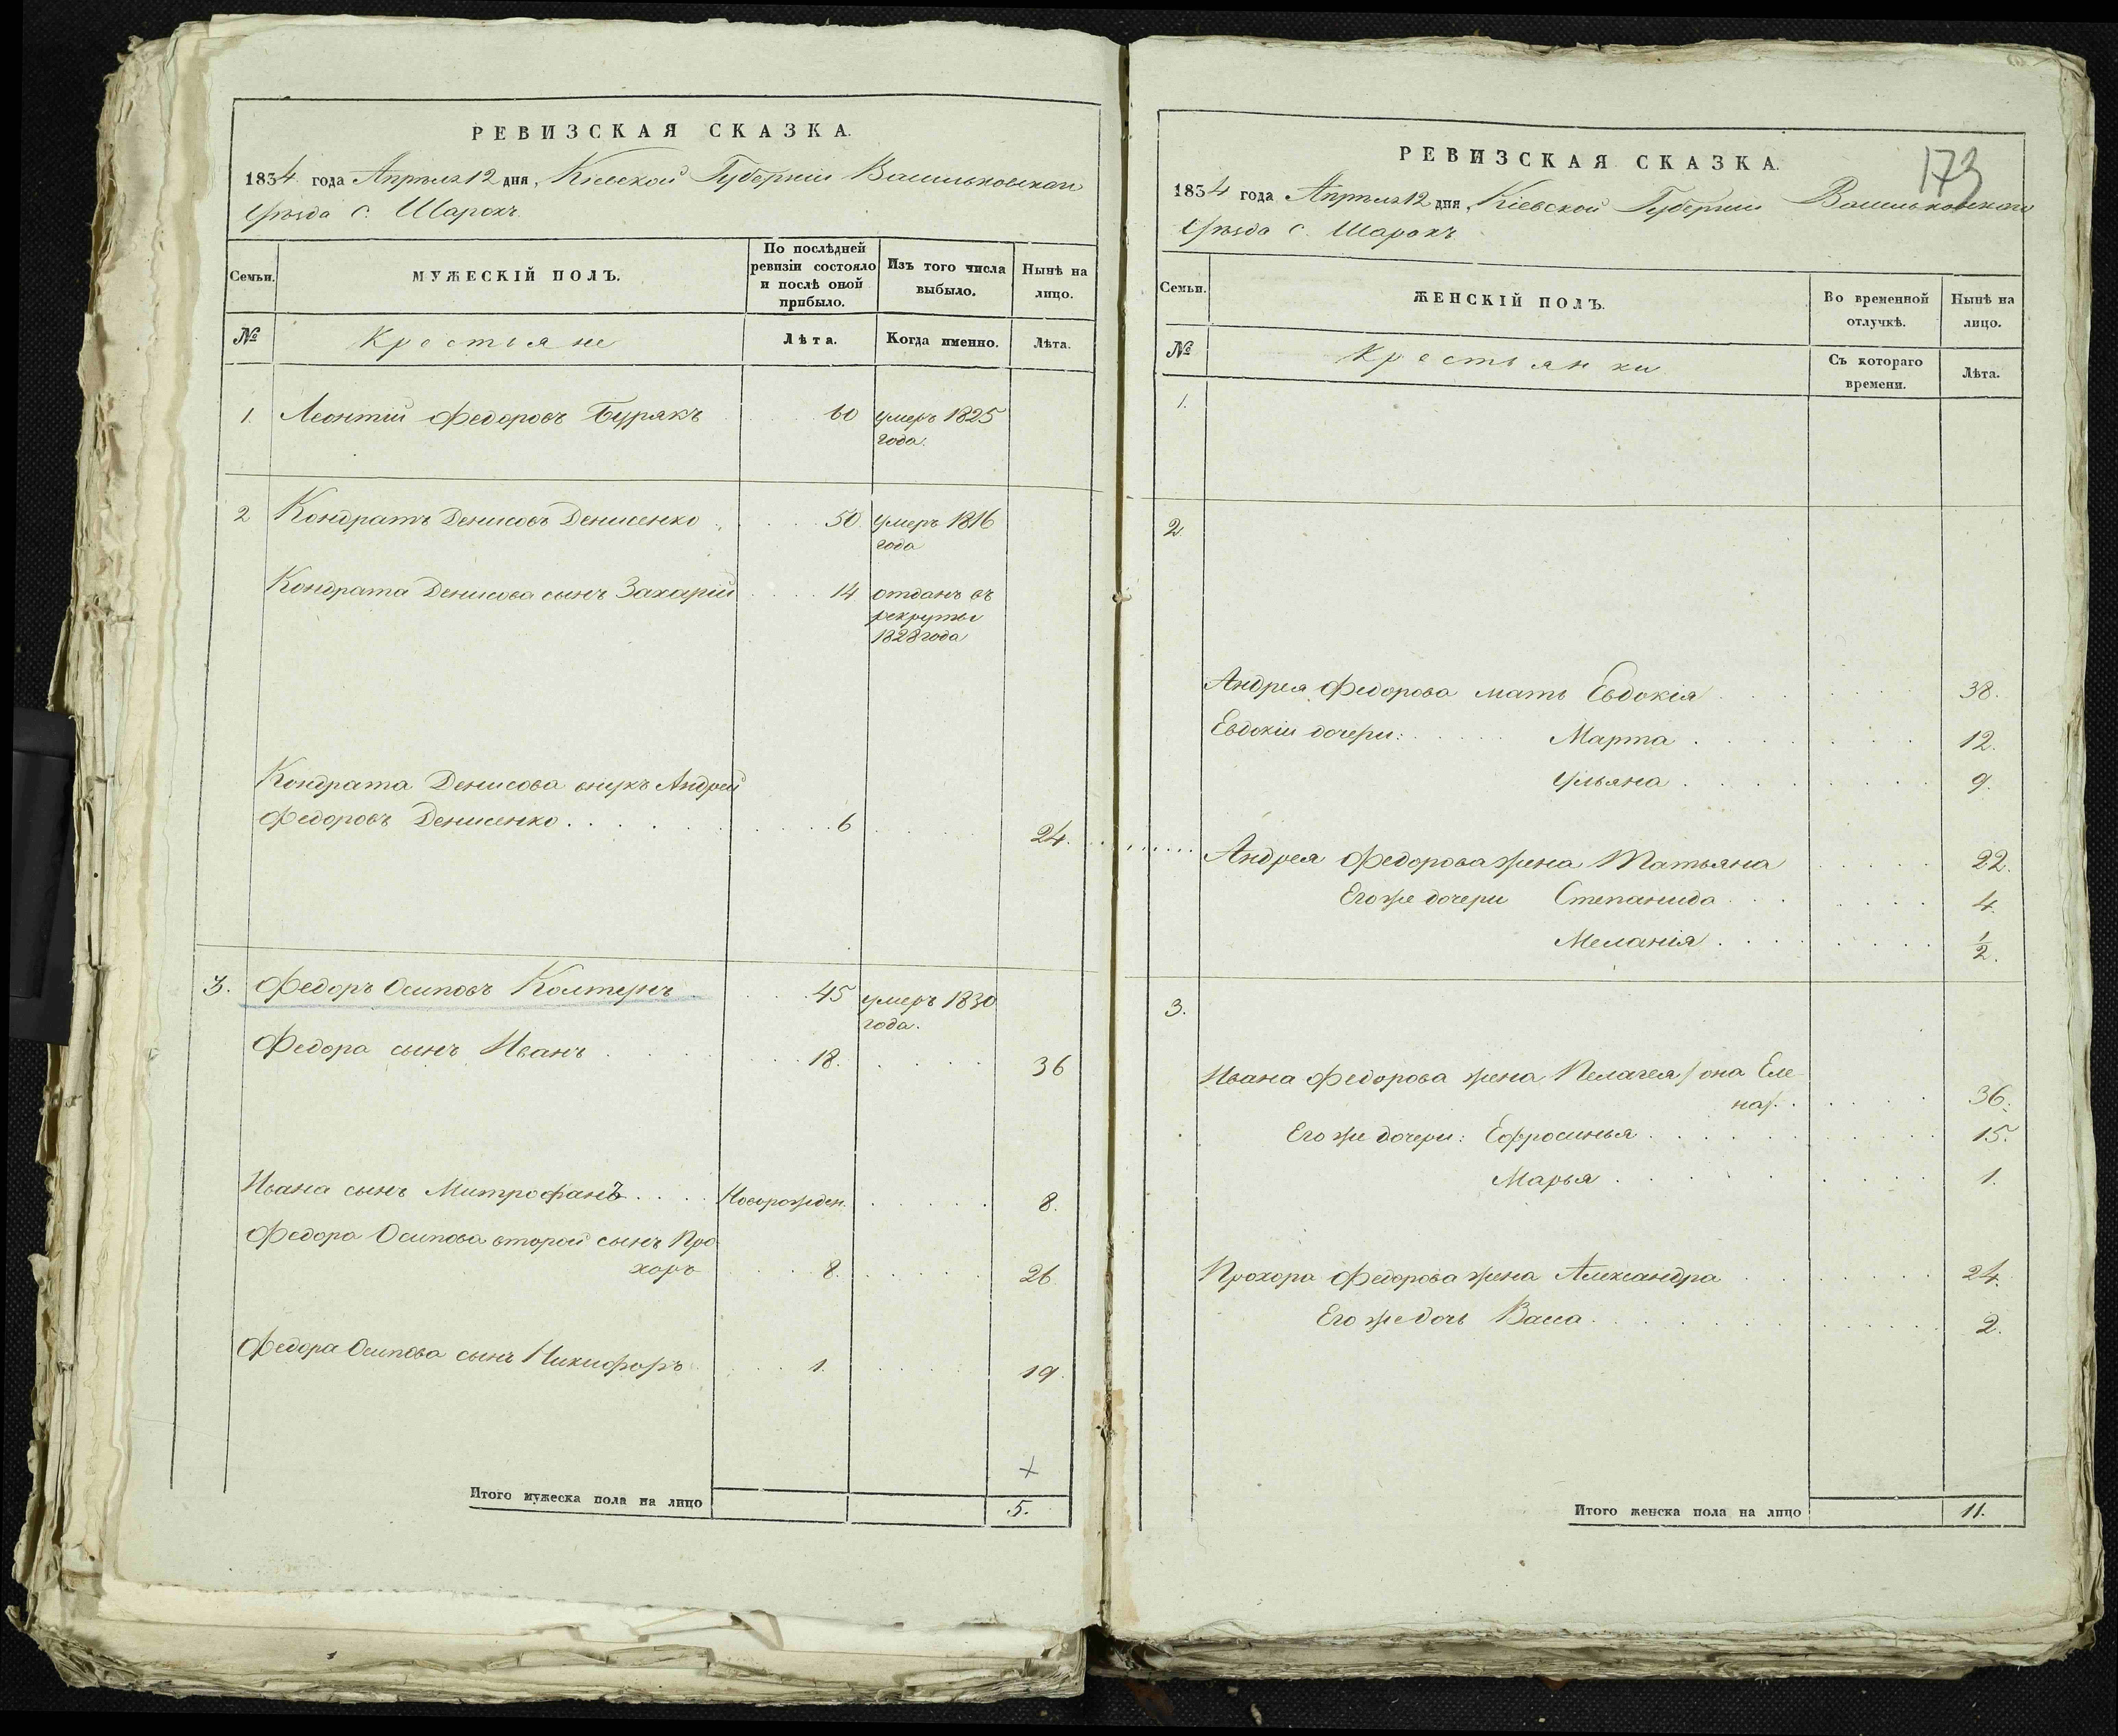 РЕВИЗСКАЯ СКАЗКА.
1834 года Апреля 12 дня, Кіевской Губерніи Васильковскаго
Уѣзда с. Шарокъ
Семьи.
МУЖЕСКІЙ ПОЛЪ.
По послѣдней ревизіи состояло и послѣ оной прибыло.
Изъ того числа выбыло.
Нынѣ на лицо.
№
Крестьяне
Лѣта.
Когда именно.
Лѣта.
1. Леонтій Федоровъ Бурякъ 60 умеръ 1825
года.
2 Кондратъ Денисовъ Денисенко 50 умеръ 1816
года
Кондрата Денисова сынъ Захарій 14 отданъ въ
рекруты
1828 года
Кондрата Денисова внукъ Андрей
Федоровъ Денисенко 6 24.
3. Федоръ Осиповъ Колтунъ 45 умеръ 1830
года.
Федора сынъ Иванъ 18. 36
Ивана сынъ Митрофанъ Новорожден. 8.
Федора Осипова второй сынъ Про
хоръ 8. 26
Федора Осипова сынъ Никифоръ 1. 19.
Итого мужеска пола на лицо 5.
173
РЕВИЗСКАЯ СКАЗКА.
1834 года Апреля 12 дня, Кіевской Губерніи Васильковскаго
Уѣзда с. Шарокъ
Семьи.
ЖЕНСКІЙ ПОЛЪ.
Во временной отлучкѣ.
Нынѣ на лицо.
№
Крестьянки
Съ котораго времени.
Лѣта.
1.
2.
Андрея Федорова мать Евдокія 38.
Евдокіи дочери: Марта 12.
Ульяна 9.
Андрея Федорова жена Татьяна 22.
Его же дочери Степанида 4.
Меланія ½.
3.
Ивана Федорова жена Пелагея /она Еле
на/. 36.
Его же дочери: Ефросинья 15.
Марья 1.
Прохора Федорова жена Александра 24.
Его же дочь Васа 2.
Итого женска пола на лицо 11.